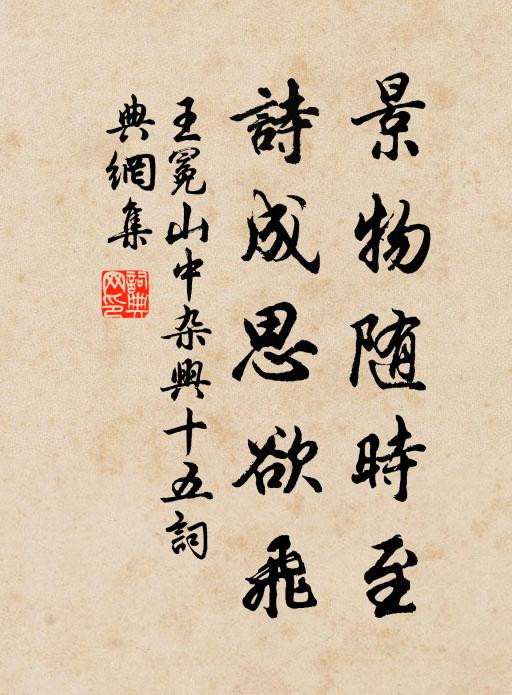 景物随時至
詩成思欲飛
王冕山中杂興十五詞
典網集
詞典网印